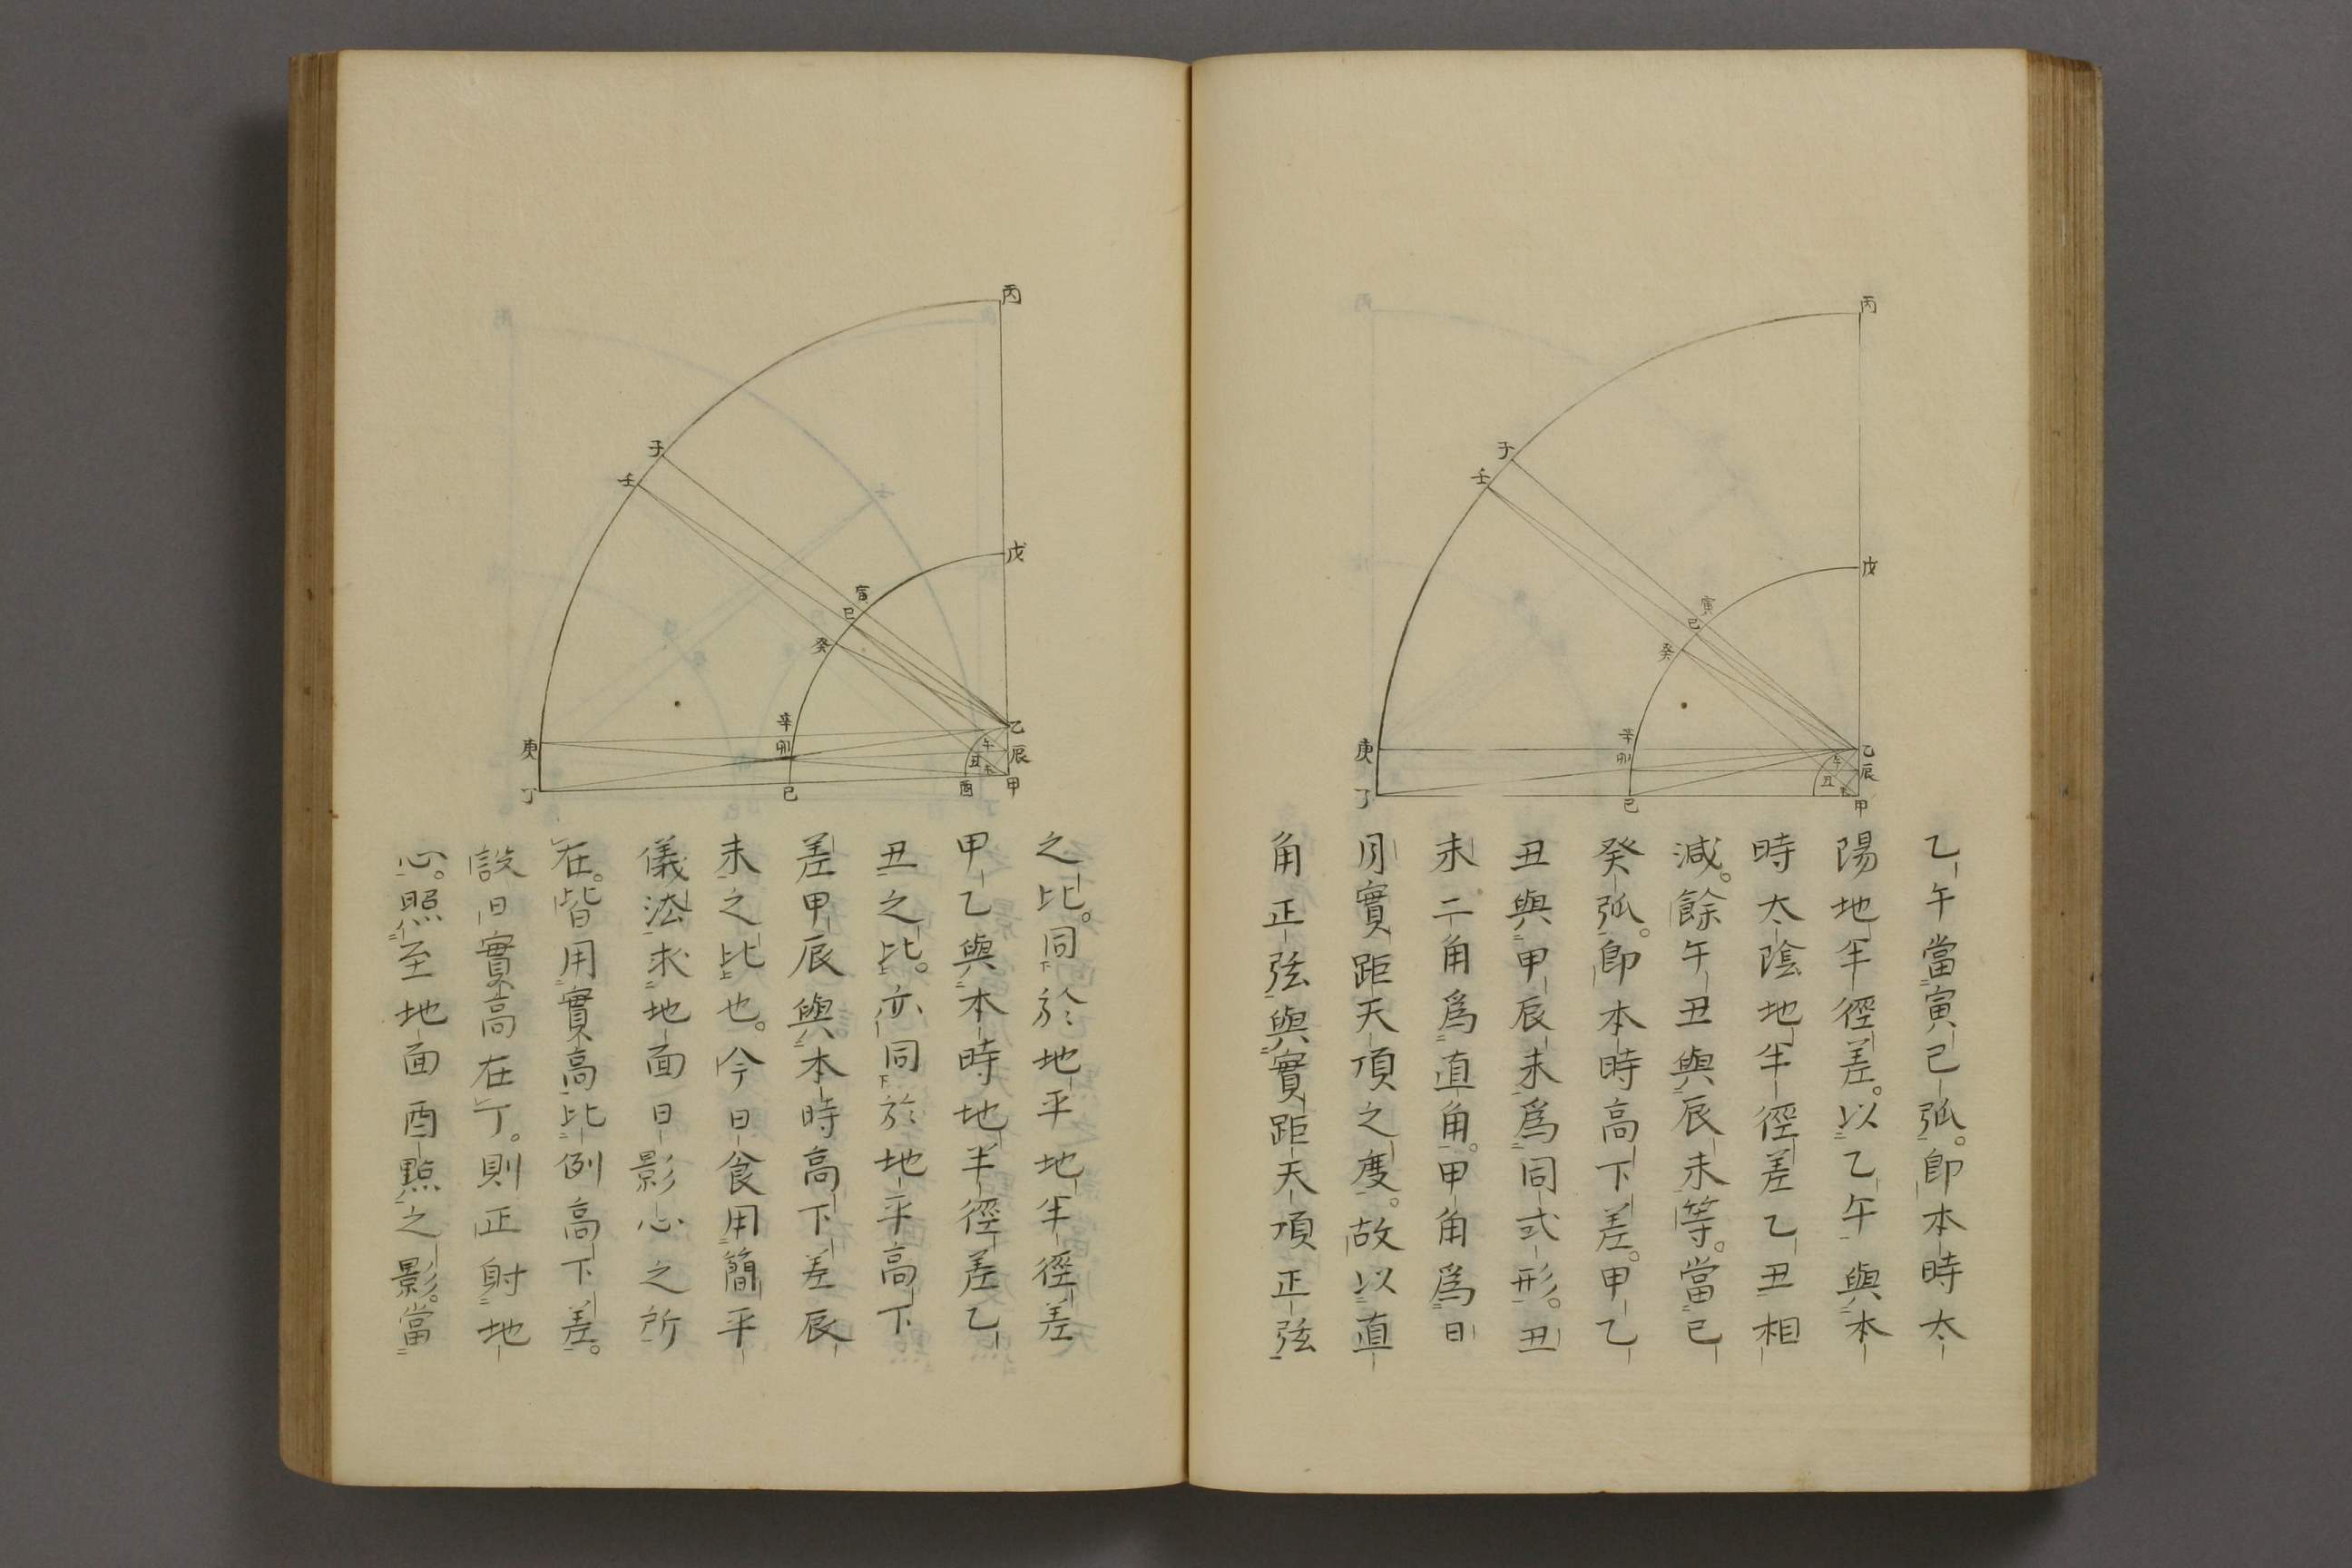 乙午當寅己弧。即本時太
陽地半徑差。以乙午與本
時太陰地半徑差乙丑相
減。餘午丑與辰未等。當己
癸弧。即本時高下差。甲乙
丑與甲辰未爲同式形。丑
未二角爲直角。甲角爲日
月實距天頂之度。故以直
角正弦與實距天頂正弦
丙
子
壬
戊
寅
己
癸
辛
卯
庚
丁
己
乙
辰
午
丑
未
甲
之比。同於地平地半徑差
甲乙與本時地半徑差乙
丑之比。亦同於地平高下
差甲辰與本時高下差辰
未之比也。今日食用簡平
儀法求地面日影心之所
在。皆用實高比例高下差。
設日實高在丁。則正射地
心。照至地面酉點之影。當
丙
子
壬
戊
己
癸
辛
卯
庚
丁
己
乙
辰
午
丑
未
酉
甲